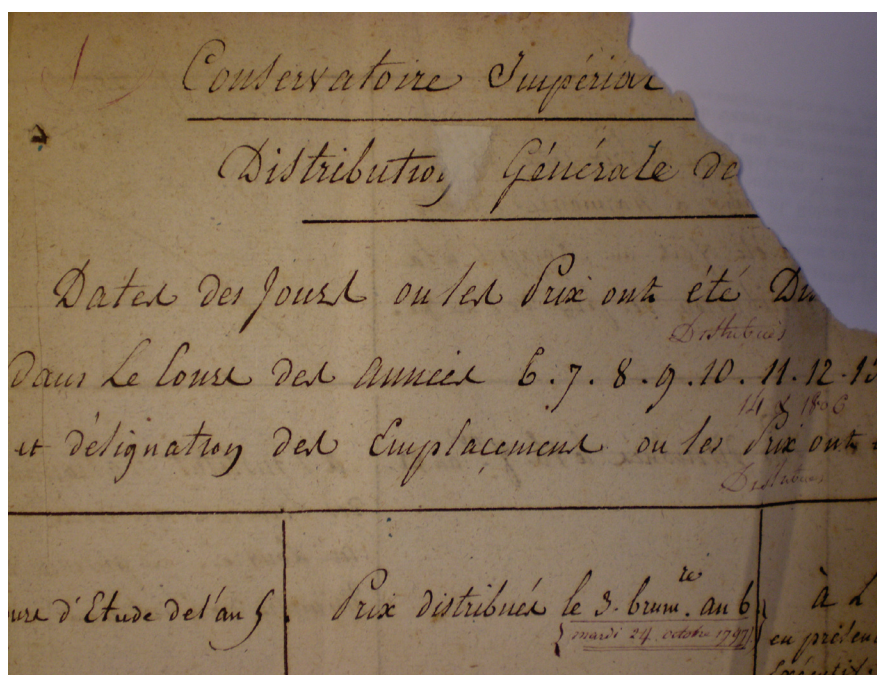 Conservatoire Impérial
Distribution Générale de
Dates des Jours ou les Prix ont été
Distribués
dans Le Cours des années 6. 7. 8. 9. 10. 11. 12. 13
14 & 1806
et désignation des Emplacement ou les Prix ont
Distribués
d'Etude de l'an 5. Prix distribués le 3. brum.re an 6 à L
{mardi 24 octobre 1797} en présen